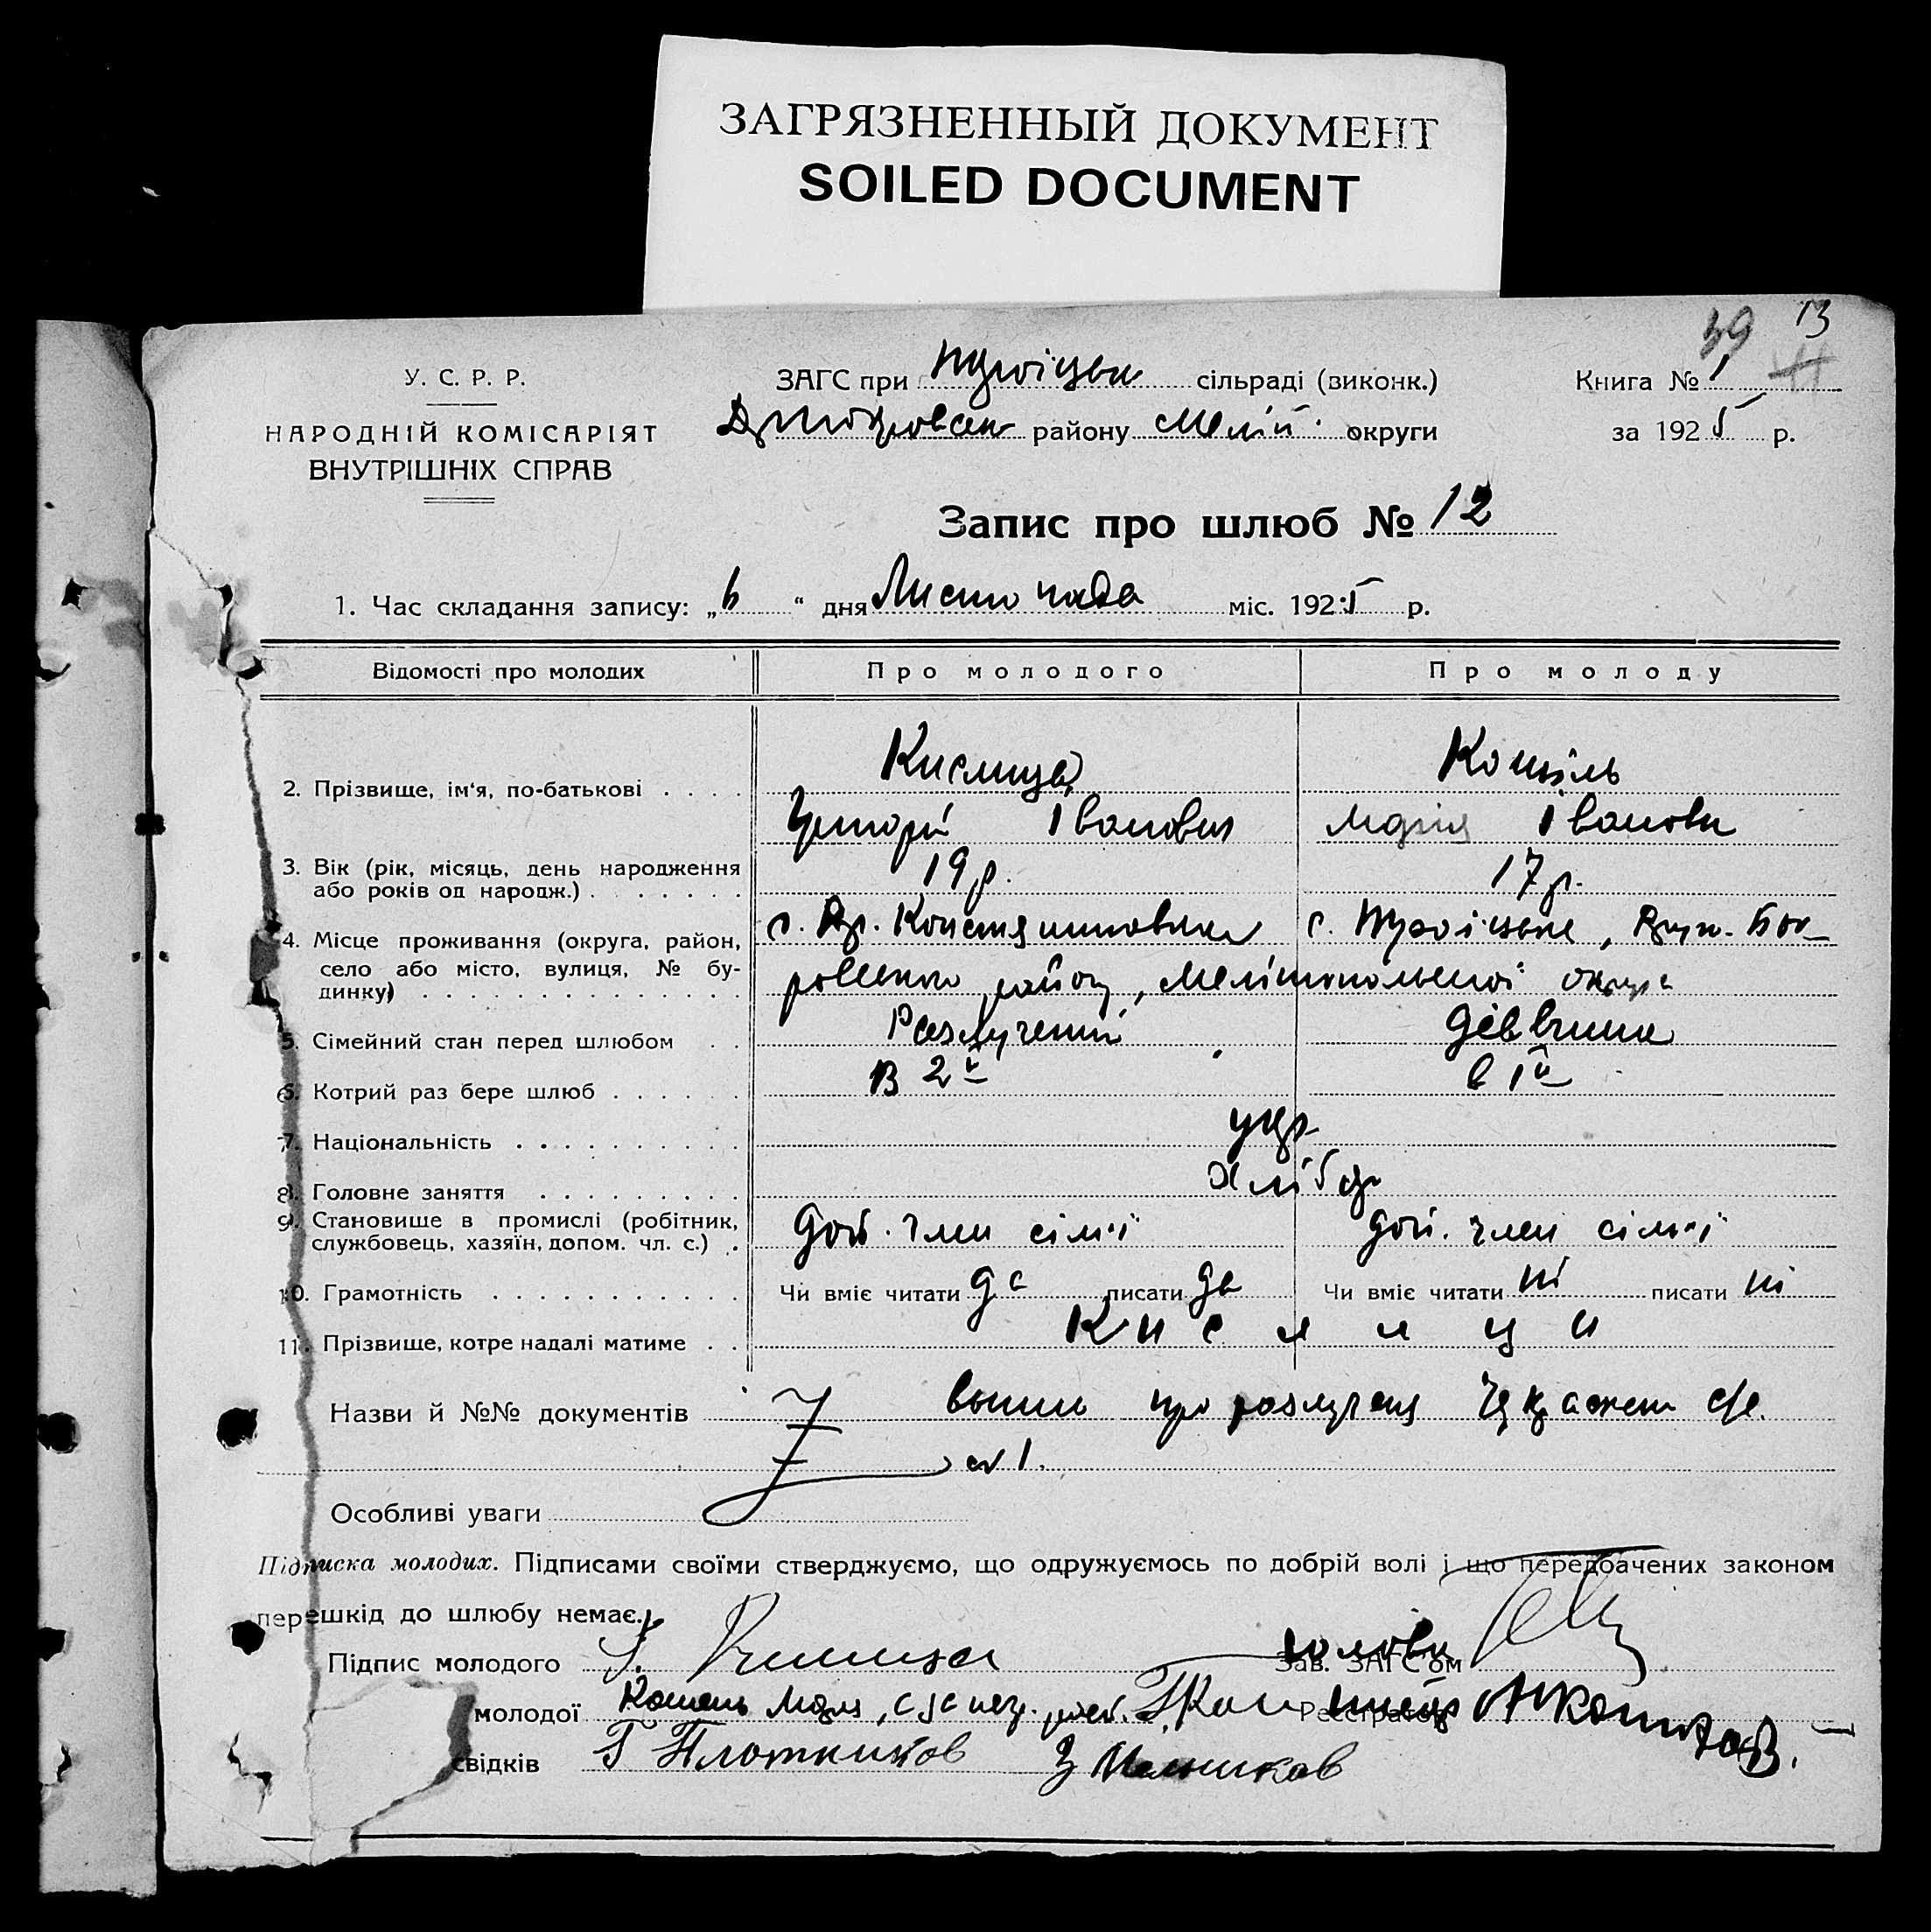 ЗАГРЯЗНЕННЫЙ ДОКУМЕНТ
SOILED DOCUMENT
39 13
У. С. Р. Р.
НАРОДНІЙ КОМІСАРІЯТ
ВНУТРІШНІХ СПРАВ
ЗАГС при сільраді (виконк.)
району Меліт. округи
Книга № 1
за 1925 р.
Запис про шлюб № 12
1. Час складання запису: „6“ дня Листопада міс. 1925 р.
Відомості про молодих Про молодого Про молоду
Кислица Кошіль
2. Прізвище, ім'я, по-батькові . . . .
Григорій Іванович Марія Іванов
3. Вік (рік, місяць, день народження 19 р. 17 р.
або років од народж.) . . . . . . .
4. Місце проживання (округа, район, с. Др. Константиновка с. Троїцьке,
село або місто, вулиця, № бу-
динку) . . . . . . . . . . . . . . району, Мелітопольскої округи
5. Сімейний стан перед шлюбом . . Разлучений Дівчина
6. Котрий раз бере шлюб . . . . . . В 2й в 1й
7. Національність . . . . . . . . . . укр.
8. Головне заняття . . . . . . . . . Хлібор
9. Становище в промислі (робітник,
службовець, хазяїн, допом. чл. с.) . доп. член сім'ї доп. член сім'ї
10. Грамотність . . . . . . . . . . . Чи вміє читати да писати да Чи вміє читати ні писати ні
11. Прізвище, котре надалі матиме . . Кислици
Назви й №№ документів про
Особливі уваги
Підписка молодих. Підписами своїми стверджуємо, що одружуємось по добрій волі і що передбачених законом
перешкід до шлюбу немає.
Підпис молодого Кислица Голова Зав. ЗАГС'ом
молодої Кошель Реєстратор
свідків Г Плотников Мельников